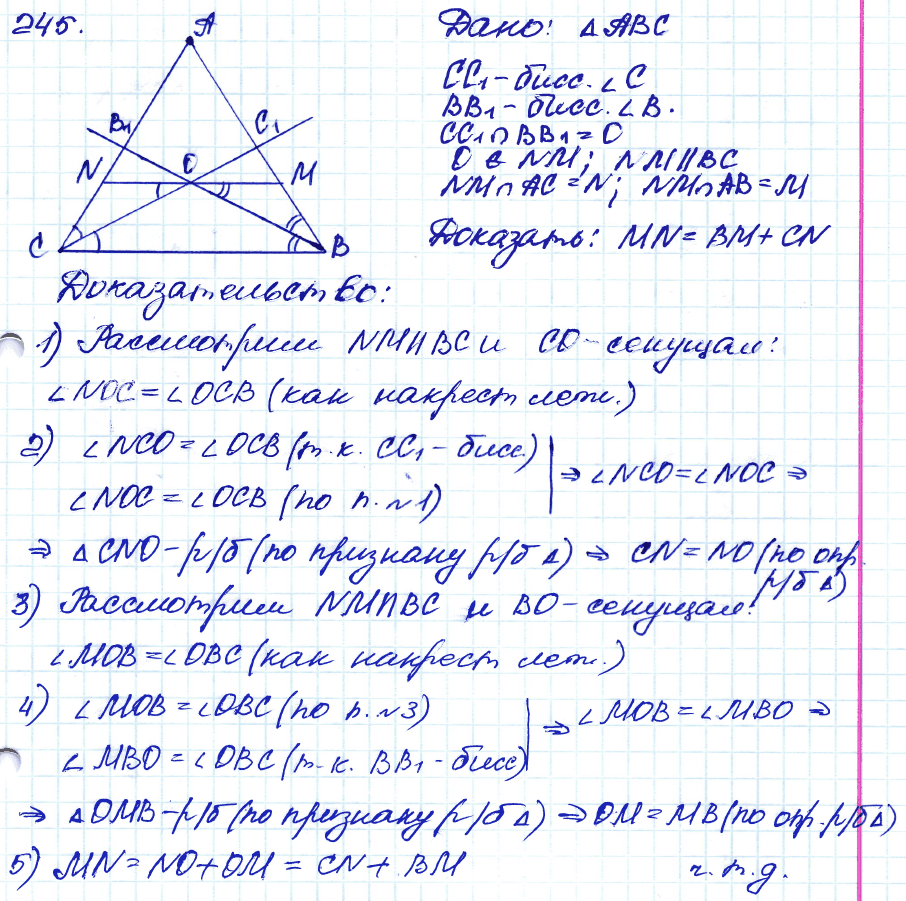 245.
A
B₁
C₁
N
O
M
C
B
Дано: △ABC
CC₁ - бисс. ∠C
BB₁ - бисс. ∠B.
CC₁ ∩ BB₁ = O
O ∈ NM; NM || BC
NM ∩ AC = N; NM ∩ AB = M
Доказать: MN = BM + CN
Доказательство:
1) Рассмотрим NM || BC и CO - секущая:
∠NOC = ∠OCB (как накрест леж.)
2) ∠NCO = ∠OCB (т.к. CC₁ - бисс.)
∠NOC = ∠OCB (по п. №1)
⇒ ∠NCO = ∠NOC ⇒
⇒ △CNO - р/б (по признаку р/б △) ⇒ CN = NO (по опр. р/б △)
3) Рассмотрим NM || BC и BO - секущая:
∠MOB = ∠OBC (как накрест леж.)
4) ∠MOB = ∠OBC (по п. №3)
∠MBO = ∠OBC (т.к. BB₁ - бисс)
⇒ ∠MOB = ∠MBO ⇒
⇒ △OMB - р/б (по признаку р/б △) ⇒ OM = MB (по опр. р/б △)
5) MN = NO + OM = CN + BM
ч.т.д.